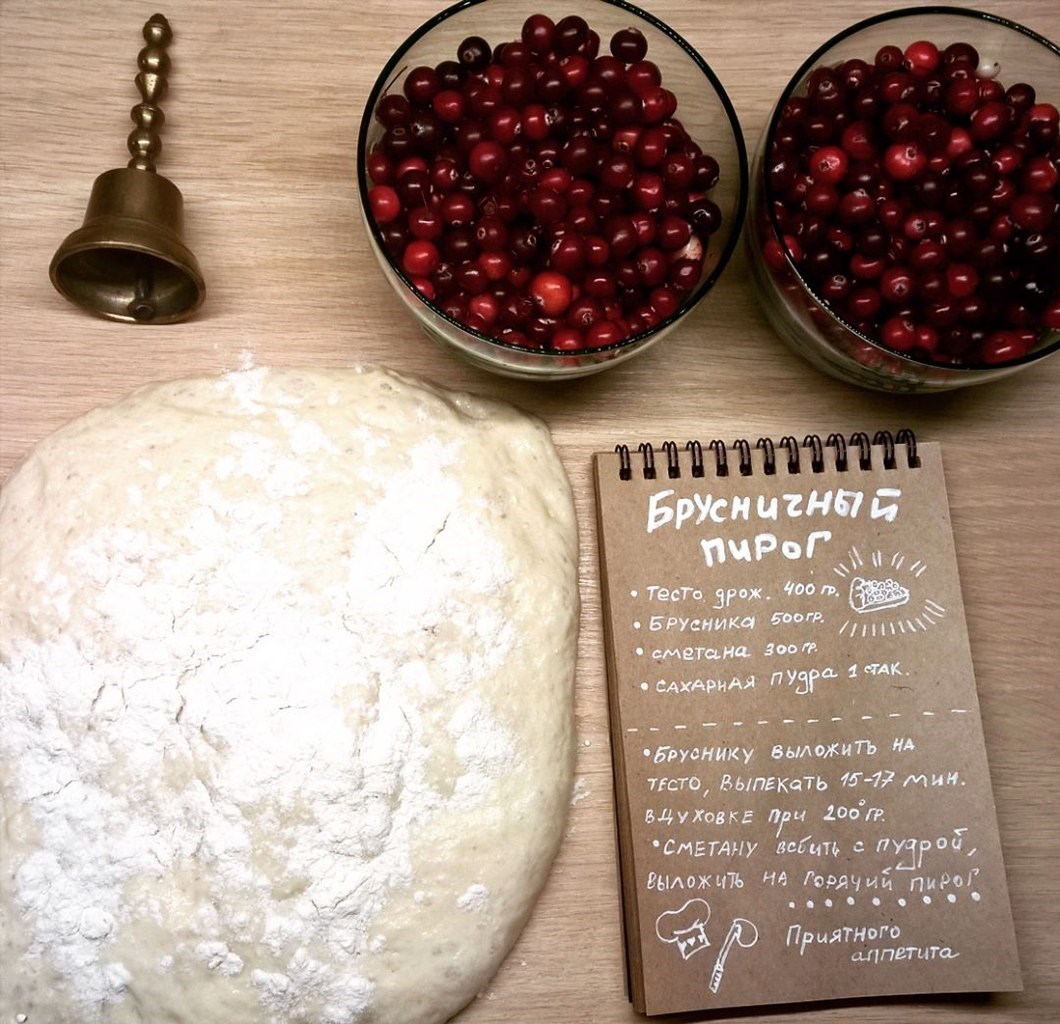 Брусничный
пирог
• тесто дрож. 400 гр.
• Брусника 500 гр.
• сметана 300 гр.
• сахарная пудра 1 стак.
• Бруснику выложить на
тесто, выпекать 15-17 мин.
в духовке при 200° гр.
• Сметану взбить с пудрой,
выложить на горячий пирог
Приятного
аппетита